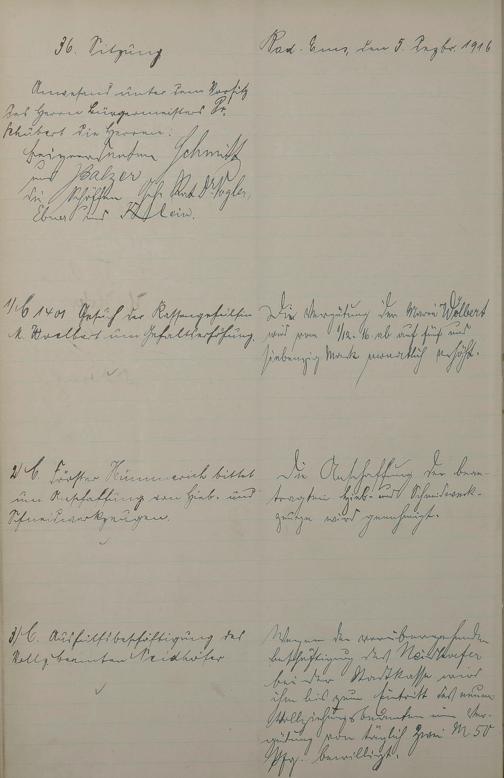 36. Sitzung
Bad-Ems, den 5. Dezbr. 1916
Anwesend unter dem Vorsitz
des Herrn Bürgermeisters Dr.
Schubert die Herren:
Beigeordneten Schmitt
und Balzer
die Schöffen Geh. Rat Dr. Vogler,
Ebner und Klein.
1/ C 1401 Gesuch der Kassengehilfin
M. Wolbert um Gehaltserhöhung.
Die Vergütung der Maria Wolbert
wird vom 1/12. 16. ab auf fünf und
siebenzig Mark monatlich erhöht.
2/ C. Förster Kümmerich bittet
um Anschaffung von Hieb- und
Schneidwerkzeugen.
Die Anschaffung der bean-
tragten Hieb- und Schneidwerk-
zeuge wird genehmigt.
3/ C. Aushilfsbeschäftigung des
Vollzbeamten Neidhöfer
Wegen der vorübergehenden
Beschäftigung des Neidhöfer
bei der Stadtkasse wird
ihm bis zum Eintritt des neuen
Vollziehungsbeamten eine Ver-
gütung von täglich zwei M 50
Pfg. bewilligt.